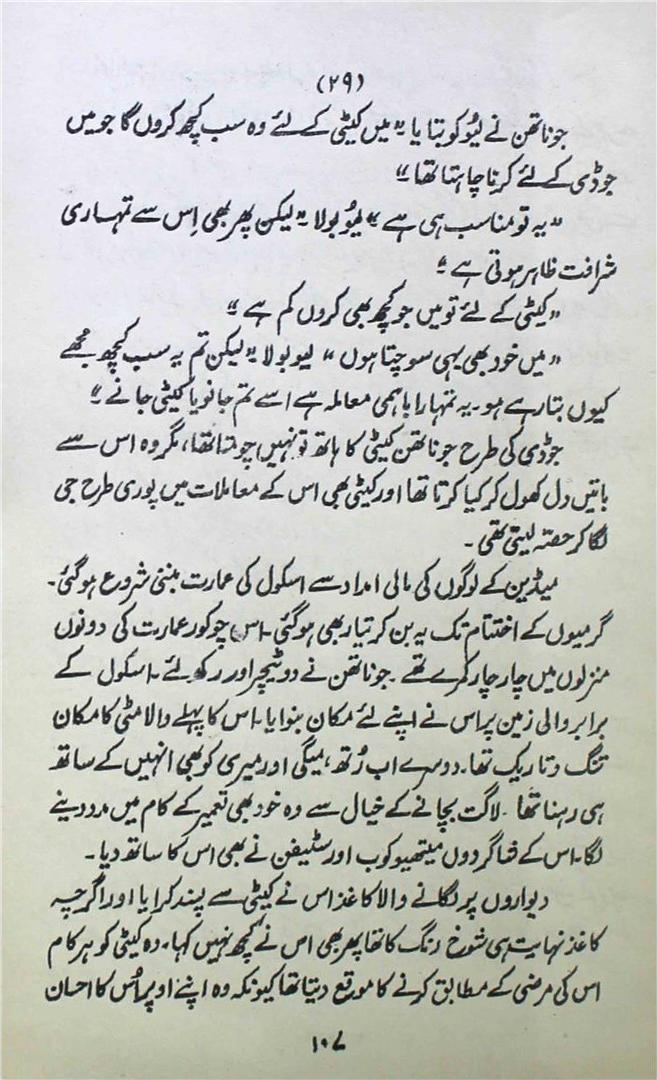 (۲۹)
جوناتھن نے لیُو کو بتایا "میں کیٹی کے لئے وہ سب کچھ کروں گا جو میں
جوڈی کے لئے کرنا چاہتا تھا"
"یہ تو مناسب ہی ہے" لیُو بولا "لیکن پھر بھی اِس سے تمہاری
شرافت ظاہر ہوتی ہے"
"کیٹی کے لئے تو میں جو کچھ بھی کروں کم ہے"
"میں خود بھی یہی سوچتا ہوں" لیو بولا "لیکن تم یہ سب کچھ مجھے
کیوں بتا رہے ہو۔ یہ تمہارا باہمی معاملہ ہے اسے تم جانو یا کیٹی جانے"
جوڈی کی طرح جوناتھن کیٹی کا ہاتھ تو نہیں چومتا تھا، مگر وہ اس سے
باتیں دل کھول کر کیا کرتا تھا اور کیٹی بھی اس کے معاملات میں پوری طرح جی
لگا کر حصّہ لیتی تھی۔
میڈین کے لوگوں کی مالی امداد سے اسکول کی عمارت بننی شروع ہو گئی۔
گرمیوں کے اختتام تک یہ بن کر تیار بھی ہو گئی۔ اس چوکور عمارت کی دونوں
منزلوں میں چار چار کمرے تھے۔ جوناتھن نے دو ٹیچر اور رکھ لئے۔ اسکول کے
برابر والی زمین پر اس نے اپنے لئے مکان بنوایا۔ اس کا پہلے والا مٹی کا مکان
تنگ و تاریک تھا۔ دوسرے اب رُتھ، میگی اور میری کو بھی انہیں کے ساتھ
ہی رہنا تھا۔ لاگت بچانے کے خیال سے وہ خود بھی تعمیر کے کام میں مدد دینے
لگا۔ اس کے شاگردوں میتھیو کوب اور سٹیفن نے بھی اس کا ساتھ دیا۔
دیواروں پر لگانے والا کاغذ اس نے کیٹی سے پسند کرایا اور اگرچہ
کاغذ نہایت ہی شوخ رنگ کا تھا پھر بھی اس نے کچھ نہیں کہا۔ وہ کیٹی کو ہر کام
اس کی مرضی کے مطابق کرنے کا موقع دیتا تھا کیونکہ وہ اپنے اوپر اُس کا احسان
۱۰۷